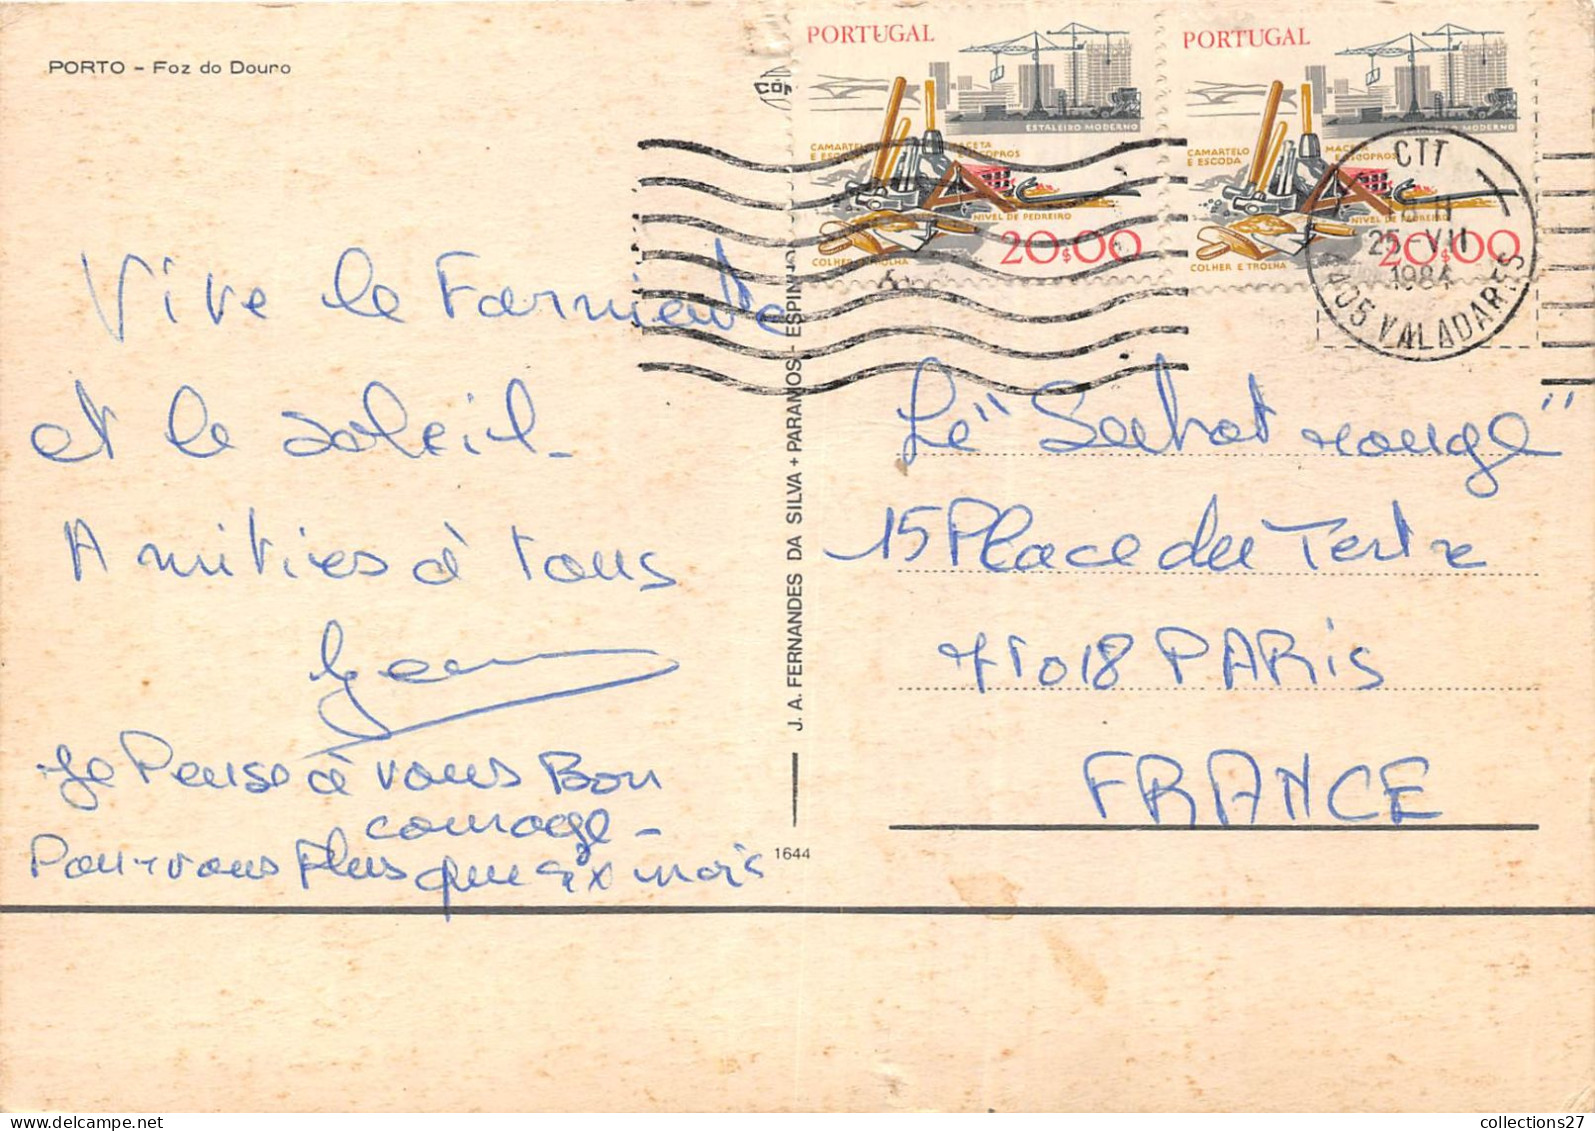 PORTO - Foz do Douro
Vive le Farniente
et le soleil -
Amitiés à tous
Je Pense à vous Bon
courage -
Pour vous Plus que six mois
J. A. FERNANDES DA SILVA + PARAMOS - ESPINHO
1644
PORTUGAL
ESTALEIRO MODERNO
CAMARTELO
E ESCODA
MACETA
E ESCOPROS
NIVEL DE PEDREIRO
COLHER E TROLHA
20$00
PORTUGAL
ESTALEIRO MODERNO
CAMARTELO
E ESCODA
MACETA
E ESCOPROS
NIVEL DE PEDREIRO
COLHER E TROLHA
20$00
CTT
25-VII
1984
4405 VALADARES
Le "Sabot rouge"
15 Place du Tertre
75018 PARIS
FRANCE
collections27